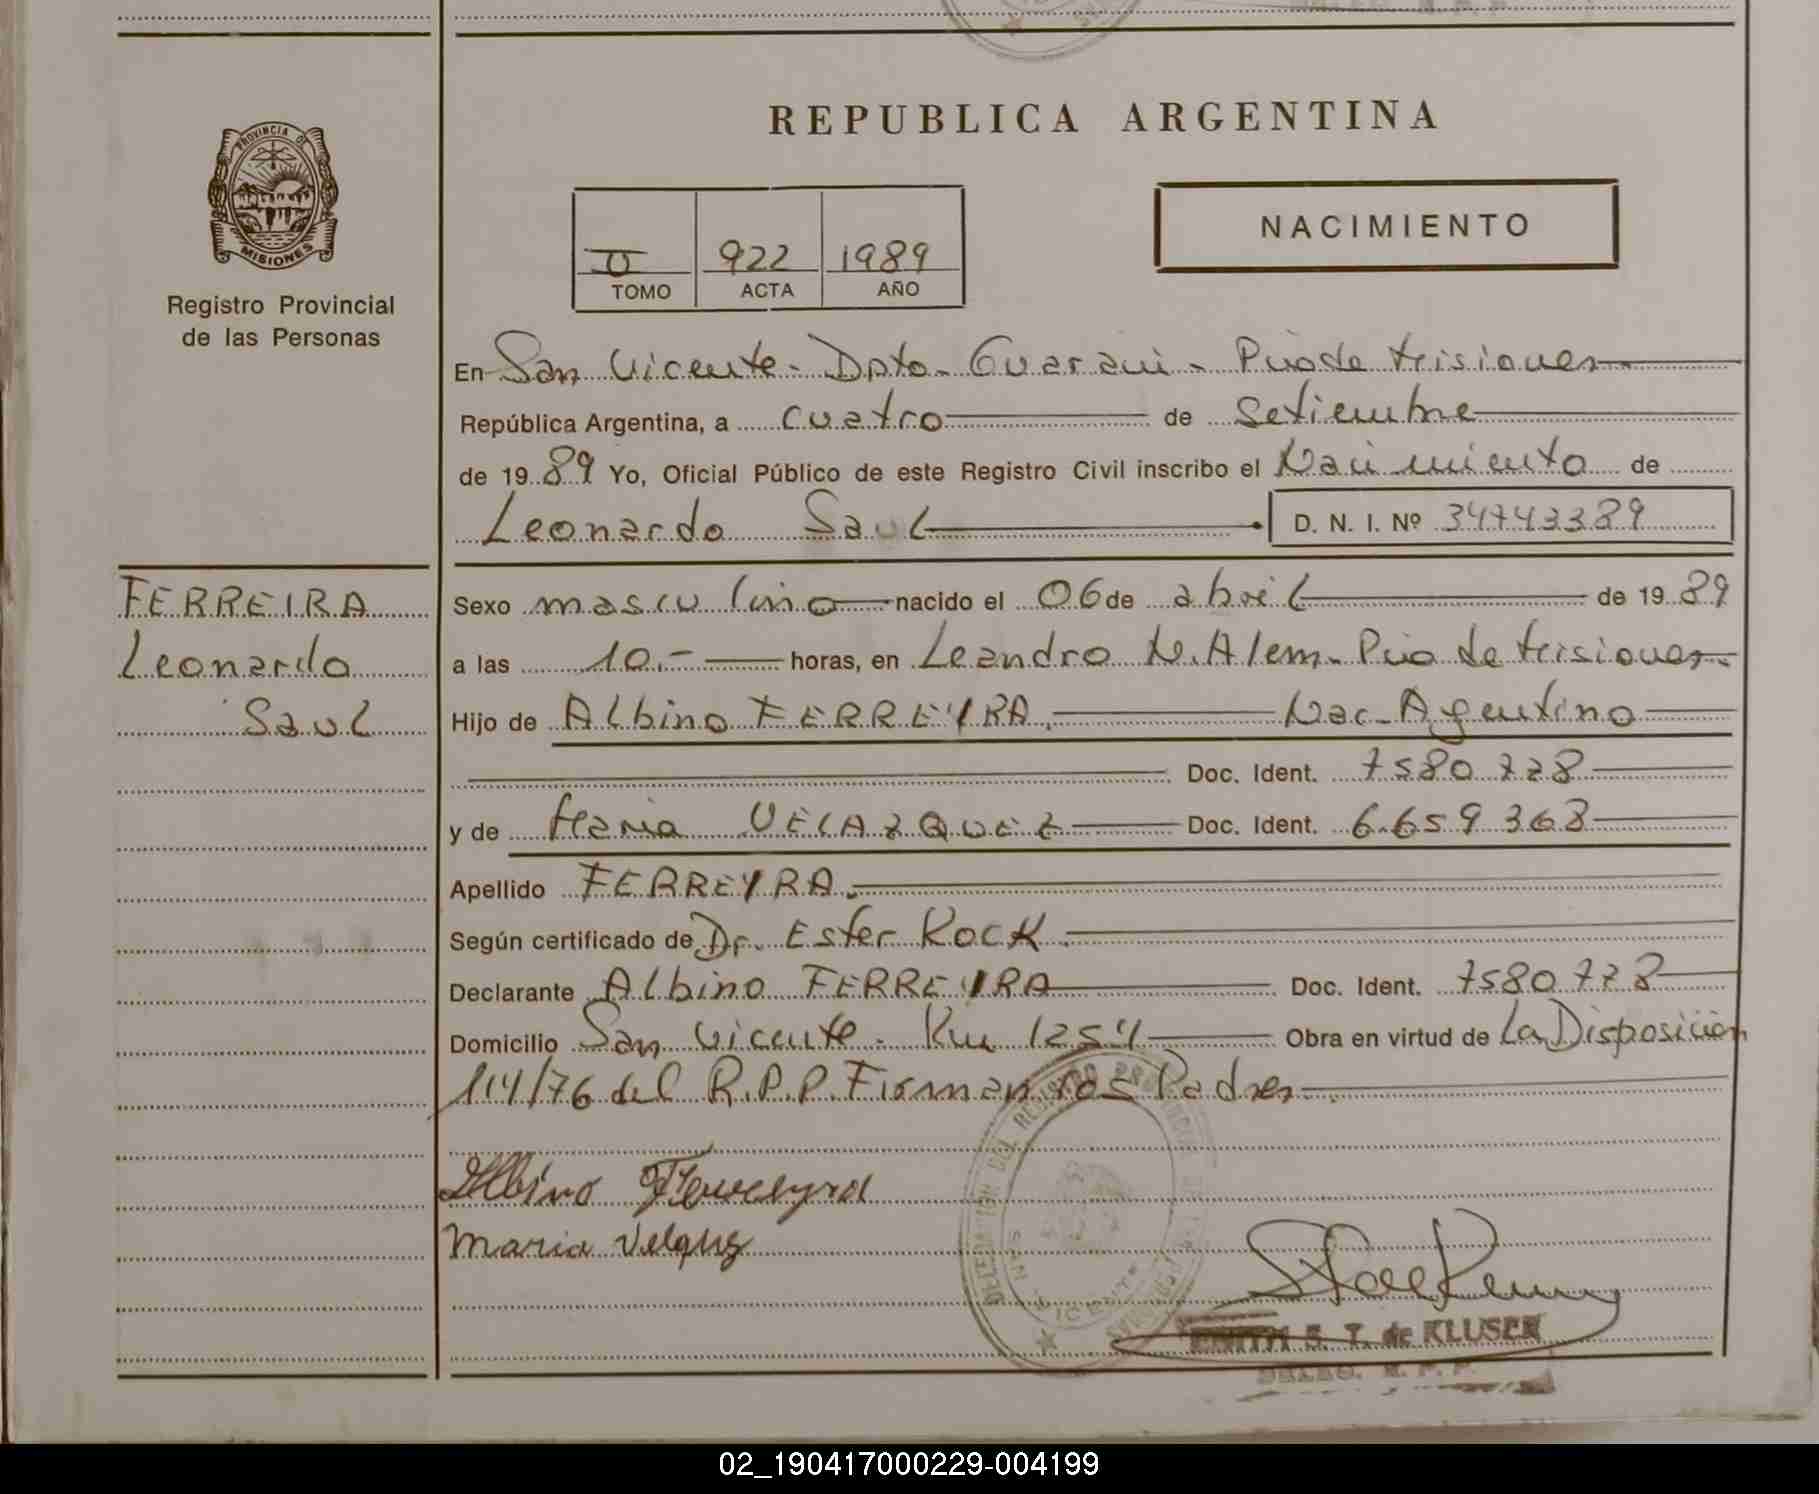 REPUBLICA ARGENTINA
PROVINCIA DE
MISIONES
Registro Provincial
de las Personas
NACIMIENTO
II 922 1989
TOMO ACTA AÑO
En San Vicente - Dpto. Guarani - Pcia de Misiones
República Argentina, a cuatro de Setiembre
de 1989 Yo, Oficial Público de este Registro Civil inscribo el Nacimiento de
Leonardo Saul D. N. I. Nº 34743389
FERREIRA
Leonardo
Saul
Sexo masculino nacido el 06 de abril de 1989
a las 10.- horas, en Leandro N. Alem - Pcia de Misiones.
Hijo de Albino FERREYRA. Nac. Argentino
Doc. Ident. 7580778
y de Maria VELAZQUEZ Doc. Ident. 6.659368
Apellido FERREYRA.
Según certificado de Dr. Ester Kock.
Declarante Albino FERREYRA Doc. Ident. 7580778
Domicilio San Vicente - Km 1254 Obra en virtud de La Disposición
114/76 del R.P.P. Firman los Padres.
Albino Ferreyra
Maria Velquz
DELEGACIÓN DEL REGISTRO PROVINCIAL
SAN VICENTE
S. T. de KLUSEK
02_190417000229-004199